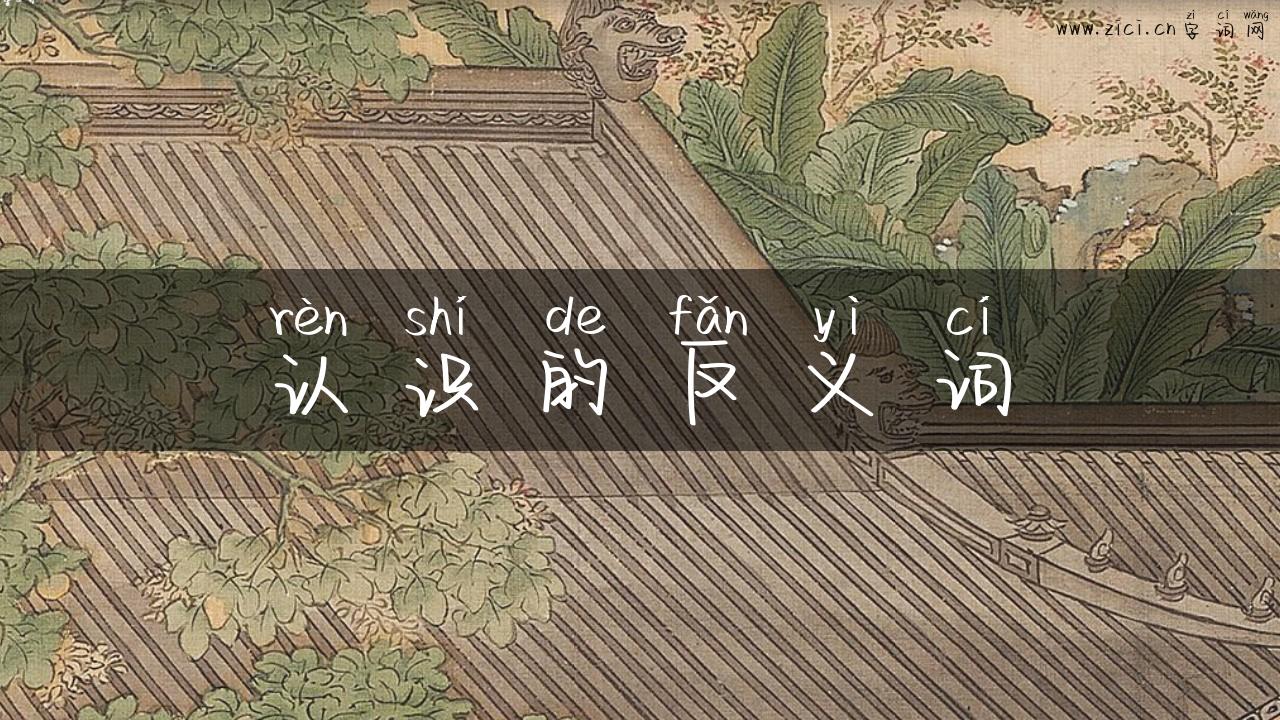 zì cí wǎng
www.zici.cn 字词网
rèn shí de fǎn yì cí
认识的反义词